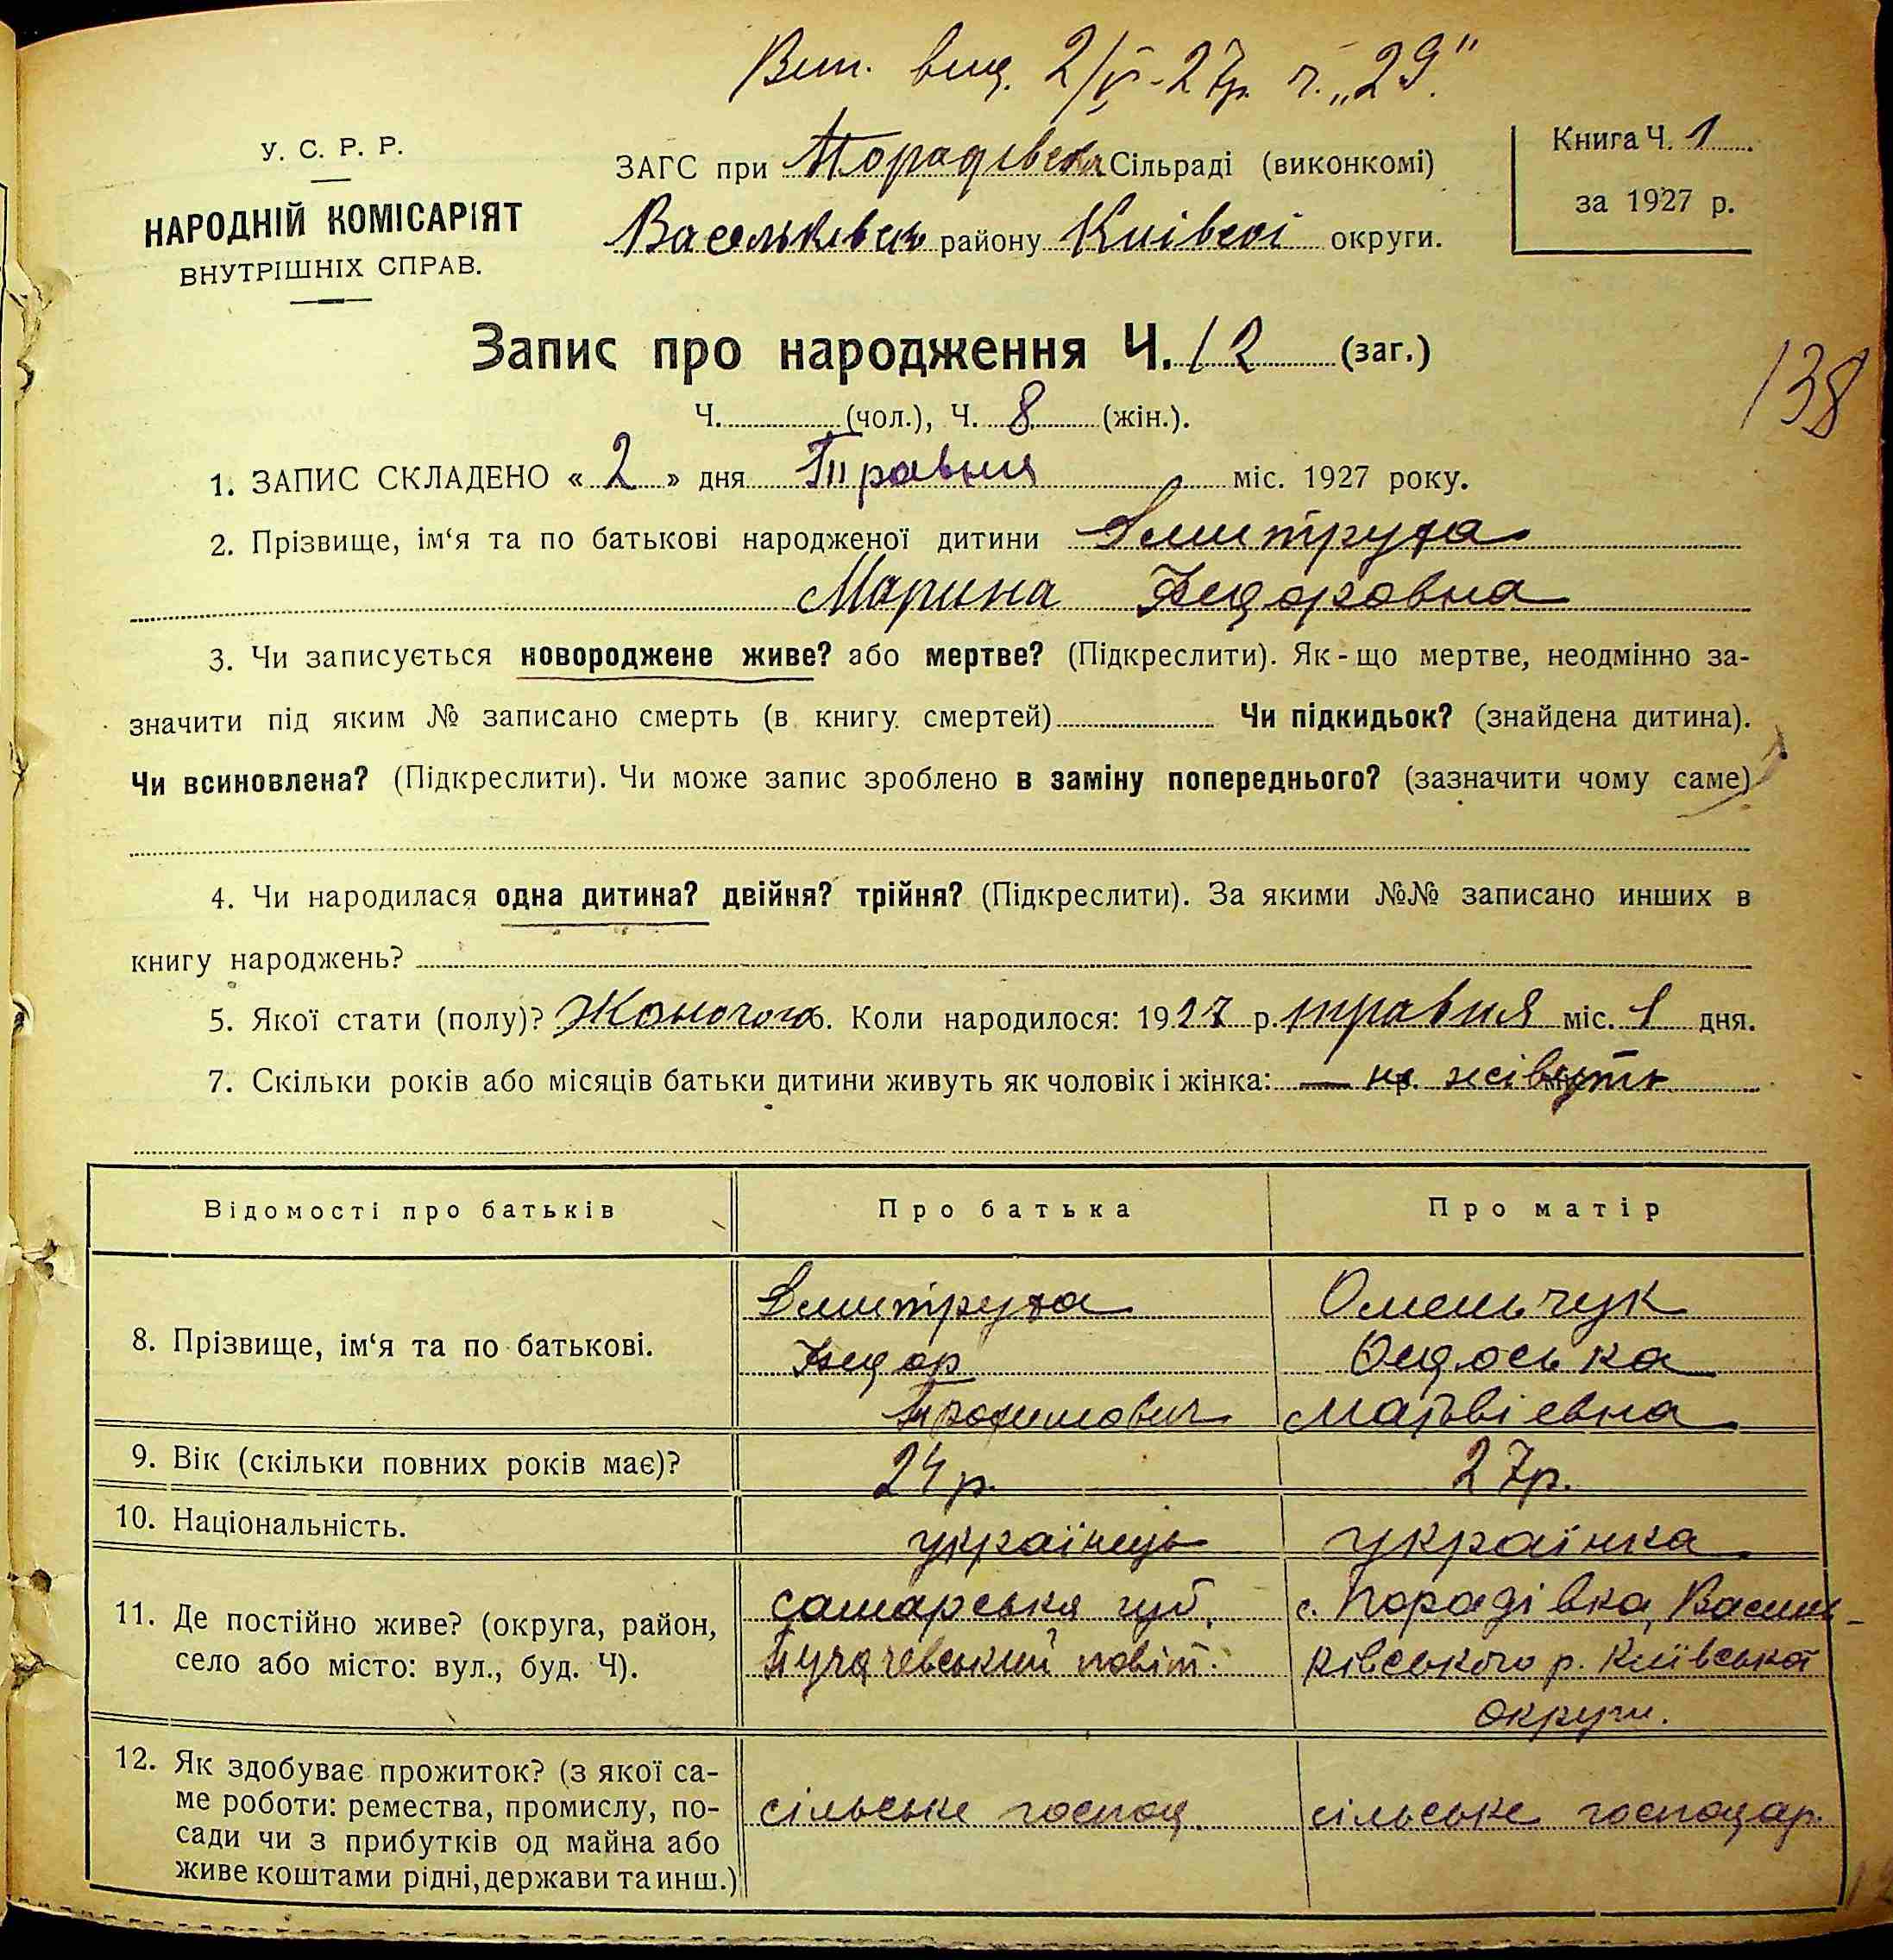 Вип. вид. 2/V-27р. ч. „29“
У. С. Р. Р.
НАРОДНІЙ КОМІСАРІЯТ
ВНУТРІШНІХ СПРАВ.
ЗАГС при Порадівськ Сільраді (виконкомі)
Васельківськ району Київської округи.
Книга Ч. 1
за 1927 р.
Запис про народження Ч. 12 (заг.)
Ч. (чол.), Ч. 8 (жін.).
138
1. ЗАПИС СКЛАДЕНО « 2 » дня Травня міс. 1927 року.
2. Прізвище, ім‘я та по батькові народженої дитини Дмитруха
Марина Федоровна
3. Чи записується новороджене живе? або мертве? (Підкреслити). Як-що мертве, неодмінно за-
значити під яким № записано смерть (в книгу смертей) Чи підкидьок? (знайдена дитина).
Чи всиновлена? (Підкреслити). Чи може запис зроблено в заміну попереднього? (зазначити чому саме)
4. Чи народилася одна дитина? двійня? трійня? (Підкреслити). За якими №№ записано инших в
книгу народжень?
5. Якої стати (полу)? Жоночого 6. Коли народилося: 1927 р. травня міс. 1 дня.
7. Скільки років або місяців батьки дитини живуть як чоловік і жінка: — не жівуть
Відомості про батьків Про батька Про матір
8. Прізвище, ім‘я та по батькові.
Дмитруха
Федор
Трохимович
Омельчук
Федоська
Матвієвна
9. Вік (скільки повних років має)? 24 р. 27р.
10. Національність. українець українка
11. Де постійно живе? (округа, район,
село або місто: вул., буд. Ч).
самарська губ.
Пугачевський повіт.
с. Порадівка, Василь-
ківського р. Київської
округи.
12. Як здобуває прожиток? (з якої са-
ме роботи: ремества, промислу, по-
сади чи з прибутків од майна або
живе коштами рідні, держави та инш.)
сільське господ.
сільське господар.